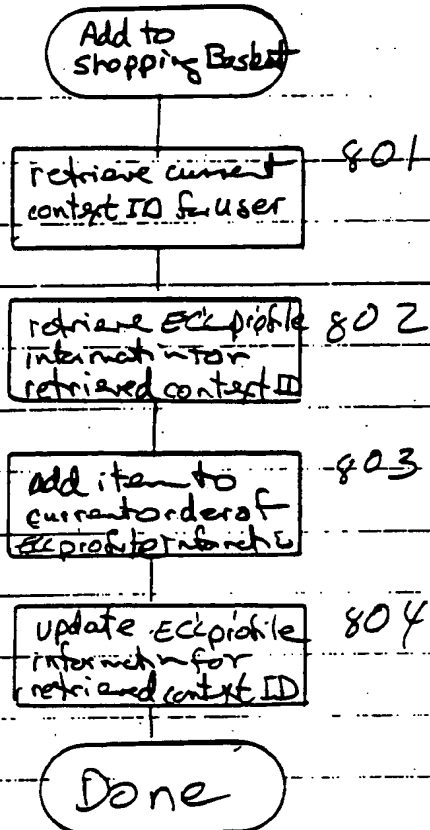 Add to
shopping Basket
801
retrieve current
context ID for user
802
retrieve EC profile
information for
retrieved context ID
803
add item to
current order of
EC profile information
804
update EC profile
information for
retrieved context ID
Done